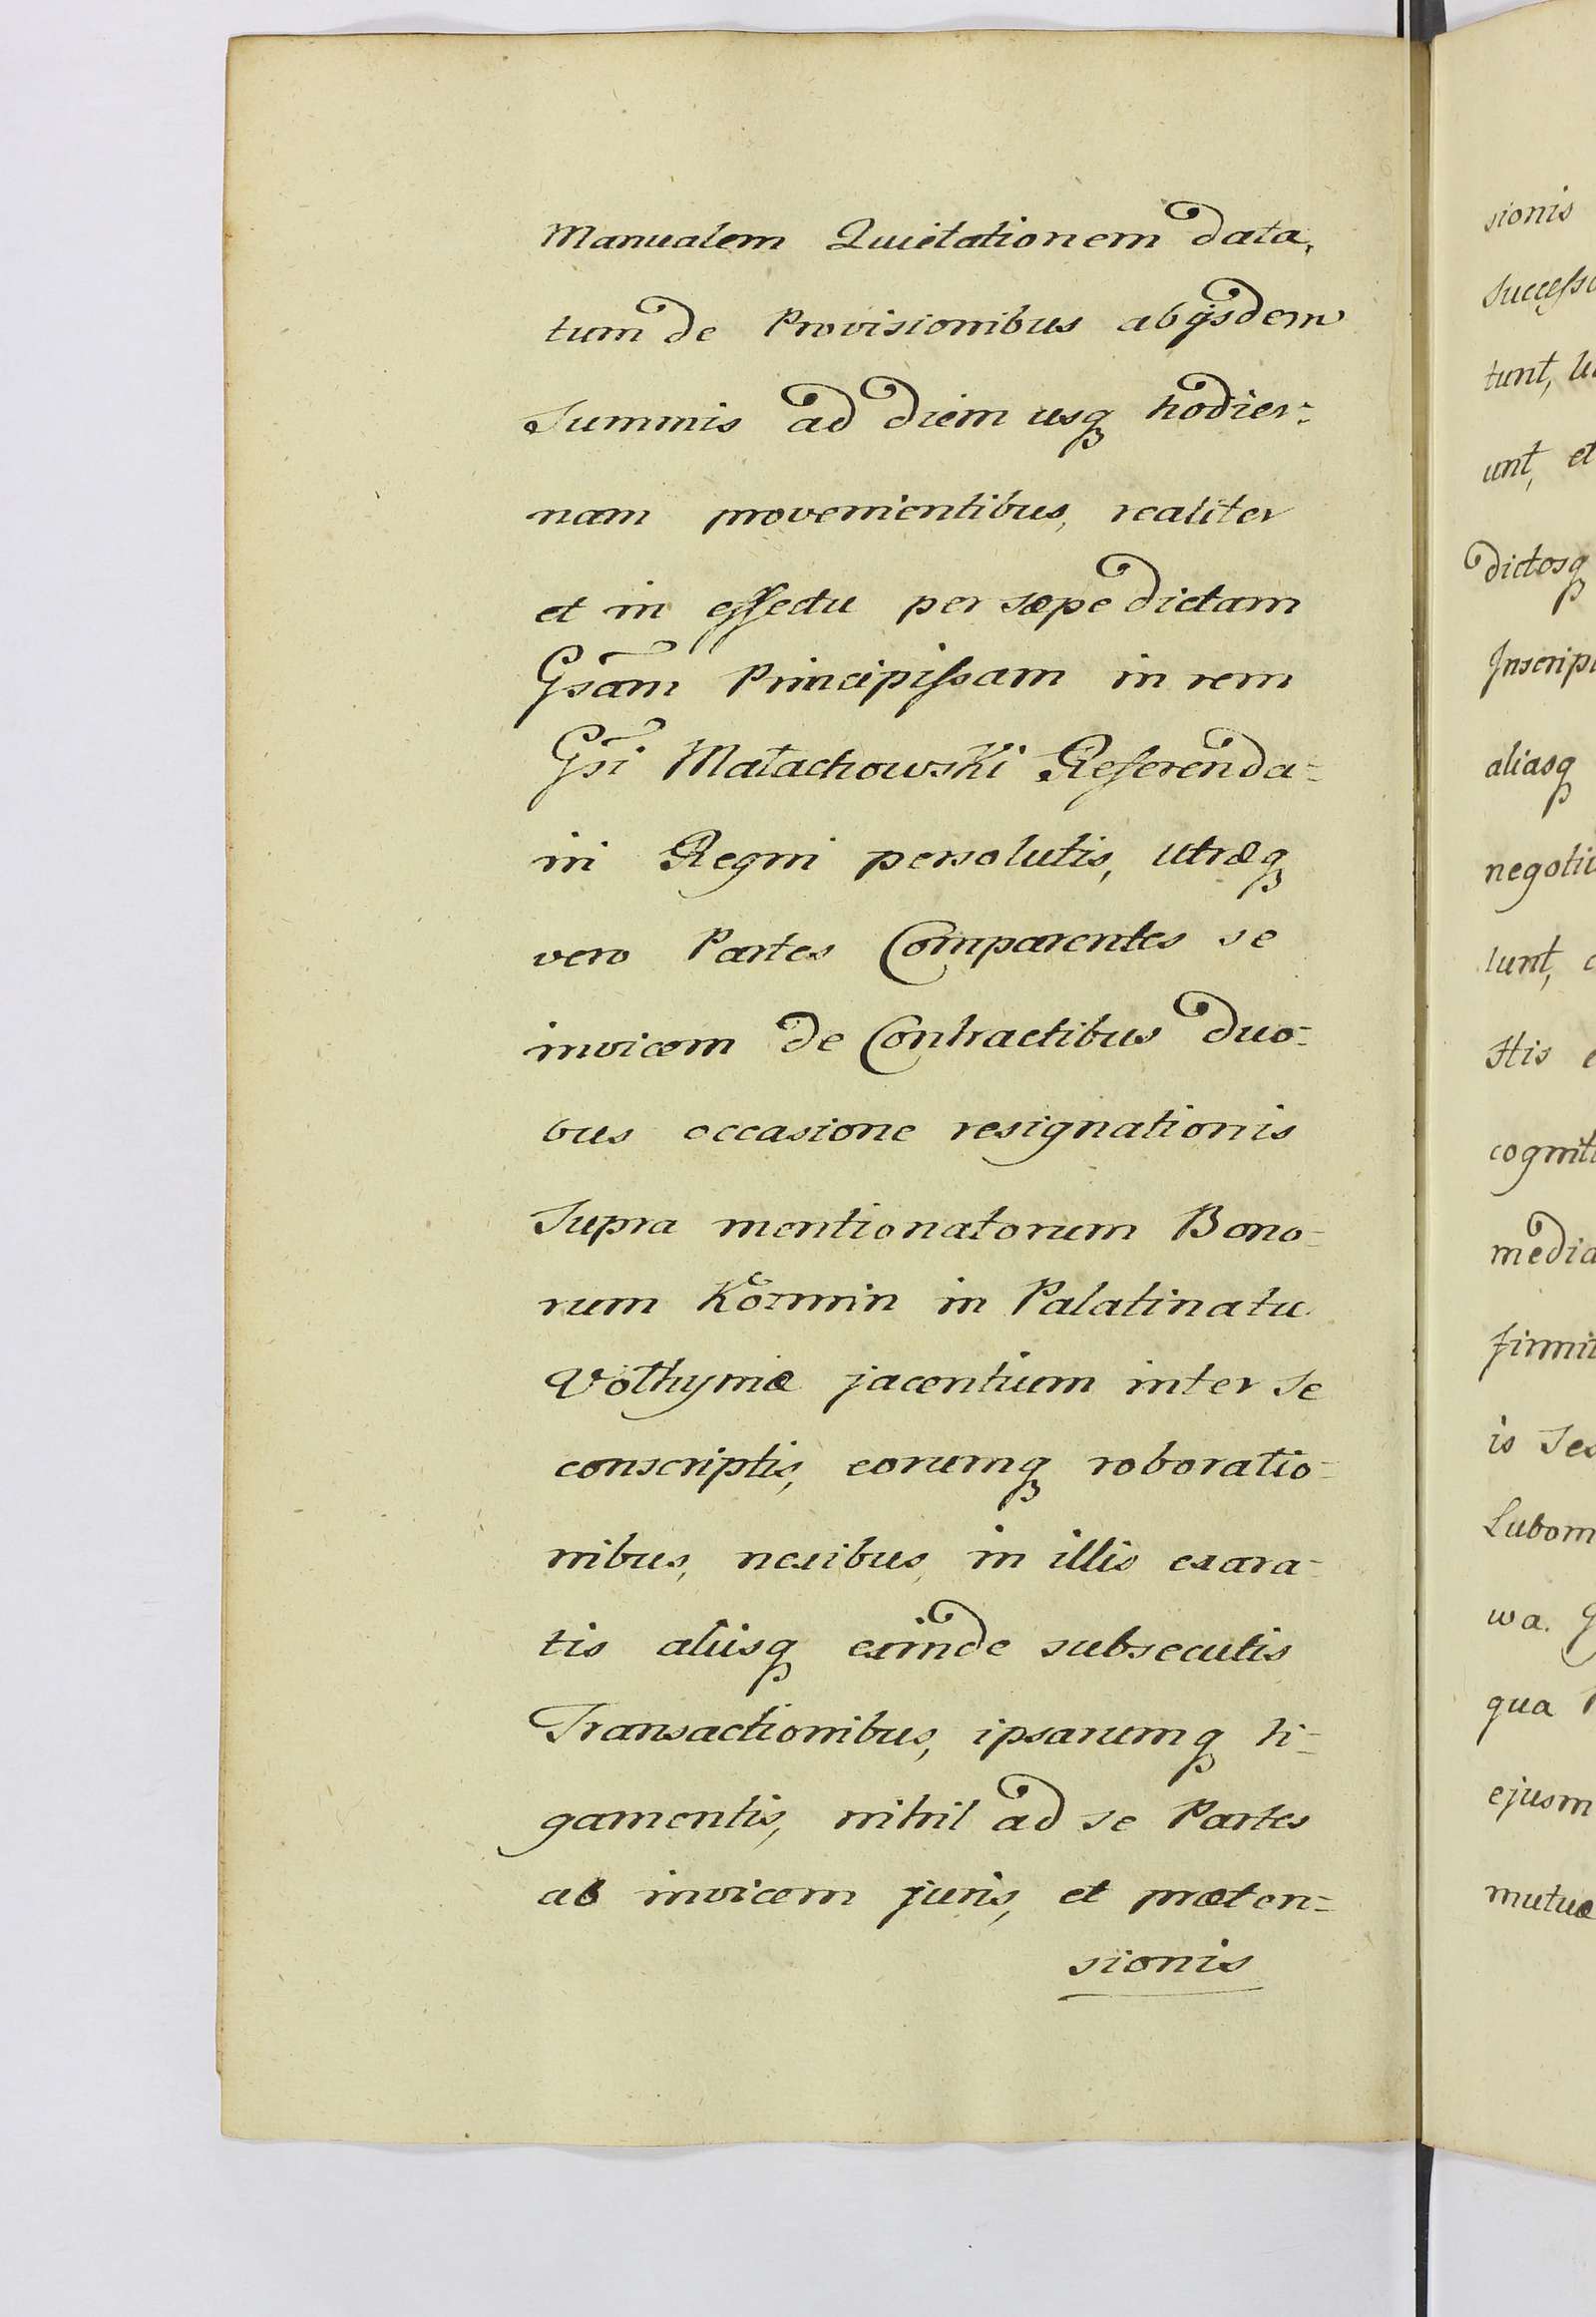 Manualem Quietationem data,
tum de Provisionibus ab ijsdem
Summis ad diem usq hodier=
nam provenientibus, realiter
et in effectu per sæpe dictam
Gsam Principissam in rem
Gsi Małachowski Referenda=
rii Regni persolutis, utræq
vero Partes Comparentes se
invicem de Contractibus duo=
bus occasione resignationis
Supra mentionatorum Bono=
rum Kozmin in Palatinatu
Volhyniæ jacentium inter se
conscriptis, eorumq roboratio=
nibus, nexibus, in illis exara=
tis aliisq exinde subsecutis
Transactionibus, ipsarumq li=
gamentis, nihil ad se Partes
ab invicem juris, et præten=
sionis
sionis
tunt,
unt, et
dictosq
aliasq
His
wa.
qua
mutuæ